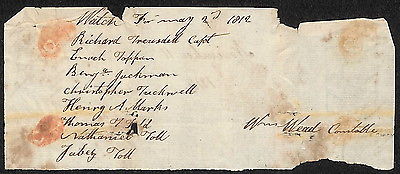 Watch For may 2d 1812
Richard Treusdell Capt
Enoch Toppan
Benjn Tuckman
Christopher Tuckwell
Henry A Marks
Thomas
Nathaniel Toll
Jabez Toll
Wm Wead Constable